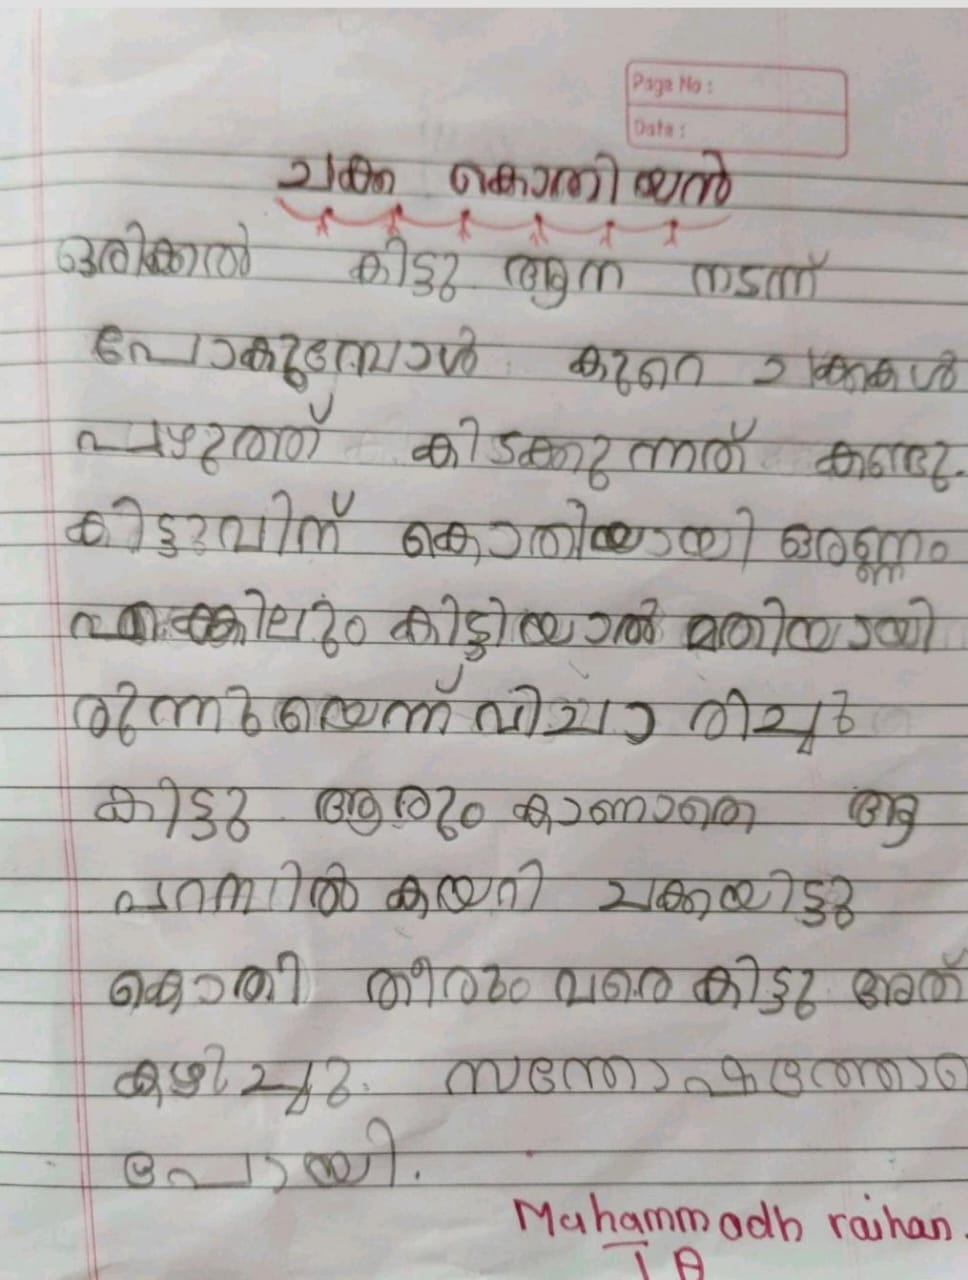 Page No :
Date :
ചക്ക കൊതിയൻ
ഒരിക്കൽ കിട്ടു ആന നടന്ന്
പോകുമ്പോൾ കുറെ ചക്കകൾ
പഴുത്ത് കിടക്കുന്നത് കണ്ടു.
കിട്ടുവിന് കൊതിയായി ഒരെണ്ണം
കിട്ടിയാൽ മതിയായി
രുന്നുയെന്ന് വിചാരിച്ചു
കിട്ടു ആരും കാണാതെ ആ
പറമ്പിൽ കയറി ചക്കയിട്ടു
കൊതി തീരും വരെ കിട്ടു അത്
കഴിച്ചു. സന്തോഷത്തോടെ
പോയി.
Muhammadh raihan.
I A